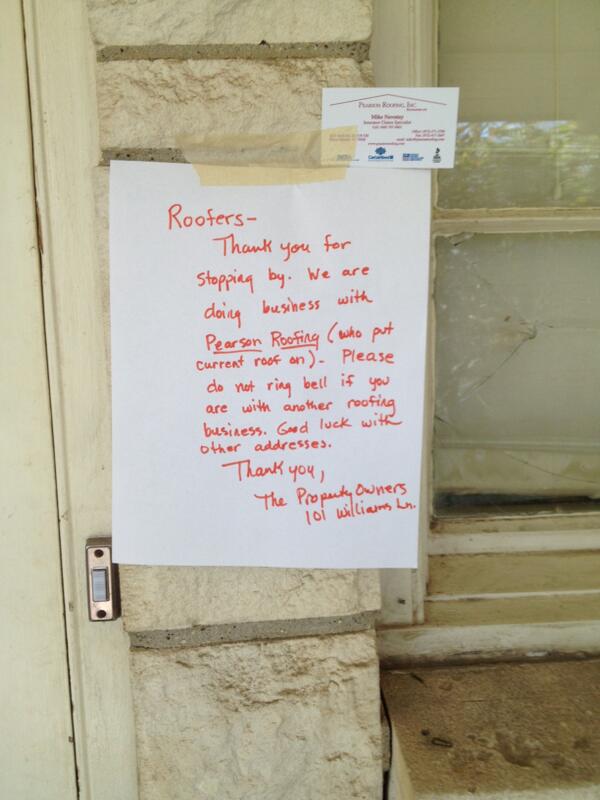 PEARSON ROOFING, INC.
Mike Novotny
Insurance Claims Specialist
Roofers-
Thank you for
stopping by. We are
doing business with
Pearson Roofing (who put
current roof on)- Please
do not ring bell if you
are with another roofing
business. Good luck with
other addresses.
Thank you,
The Property Owners
101 Williams Ln.